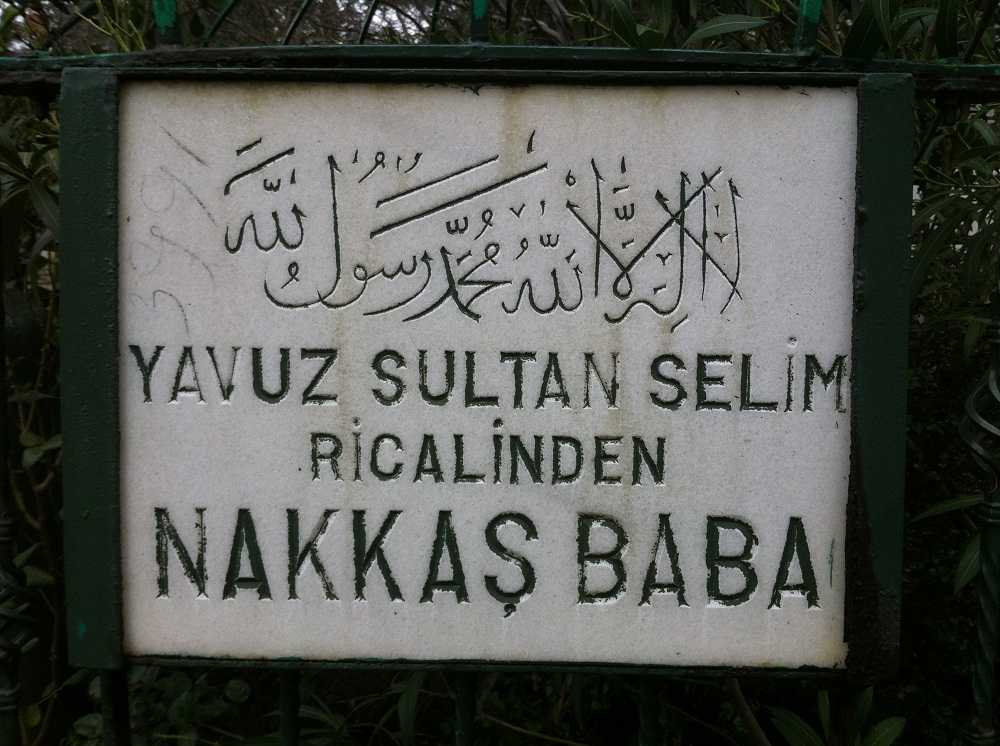 لا إله إلا الله محمد رسول الله
YAVUZ SULTAN SELİM
RİCALİNDEN
NAKKAŞ BABA